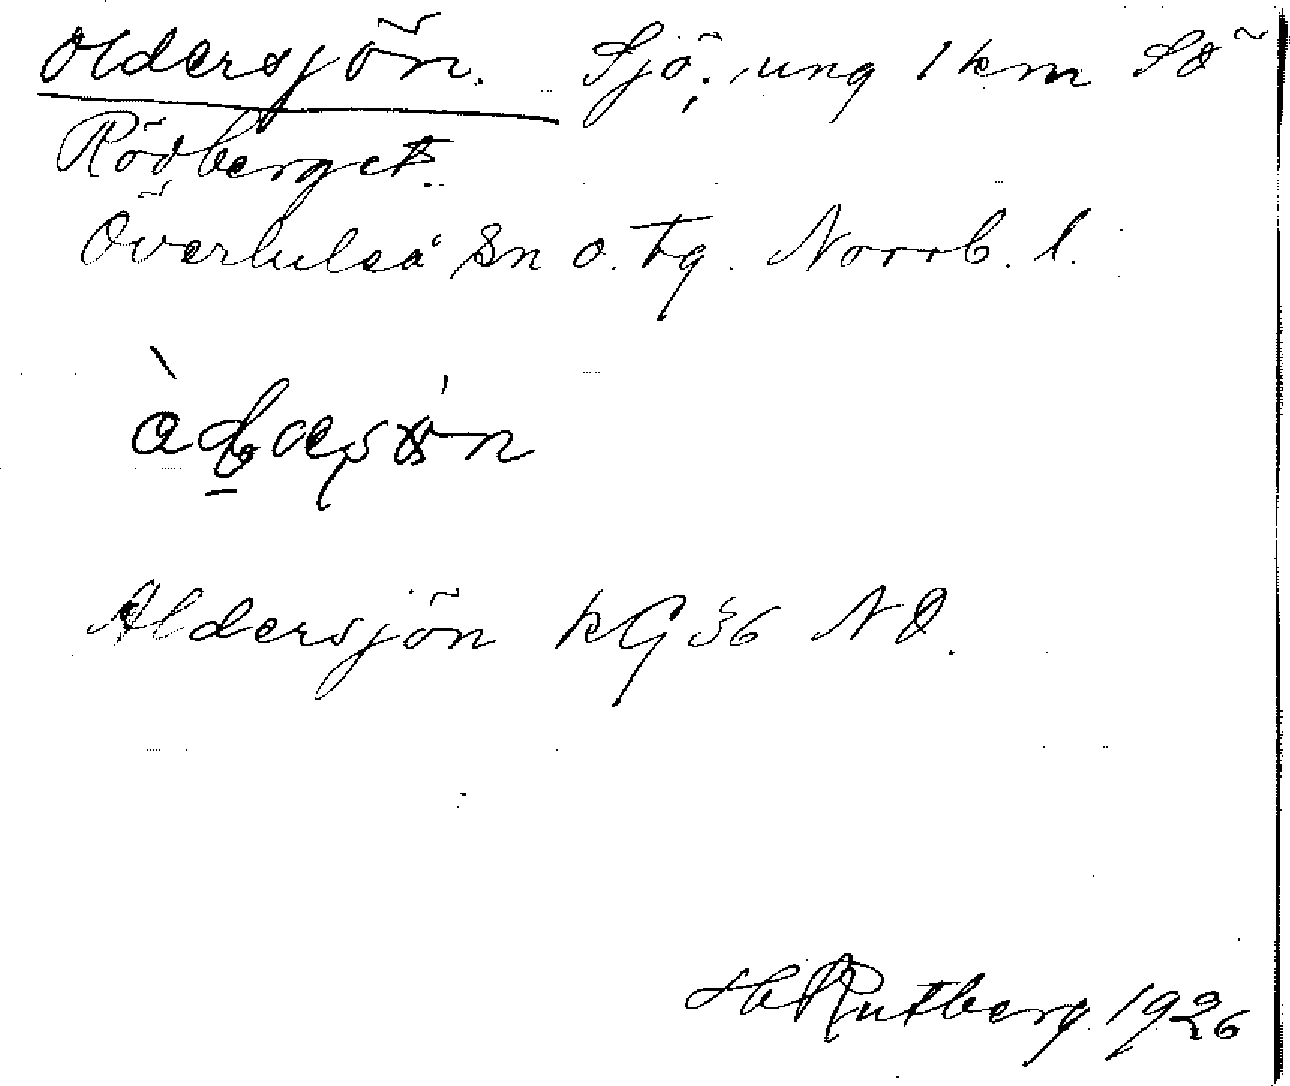 Oldersjön. Sjö, ung 1 km SÖ
Rödberget.
Överluleå Sn o. tg. Norrb. l.
Aldersjön KG 36 NO.
Hb Rutberg 1926